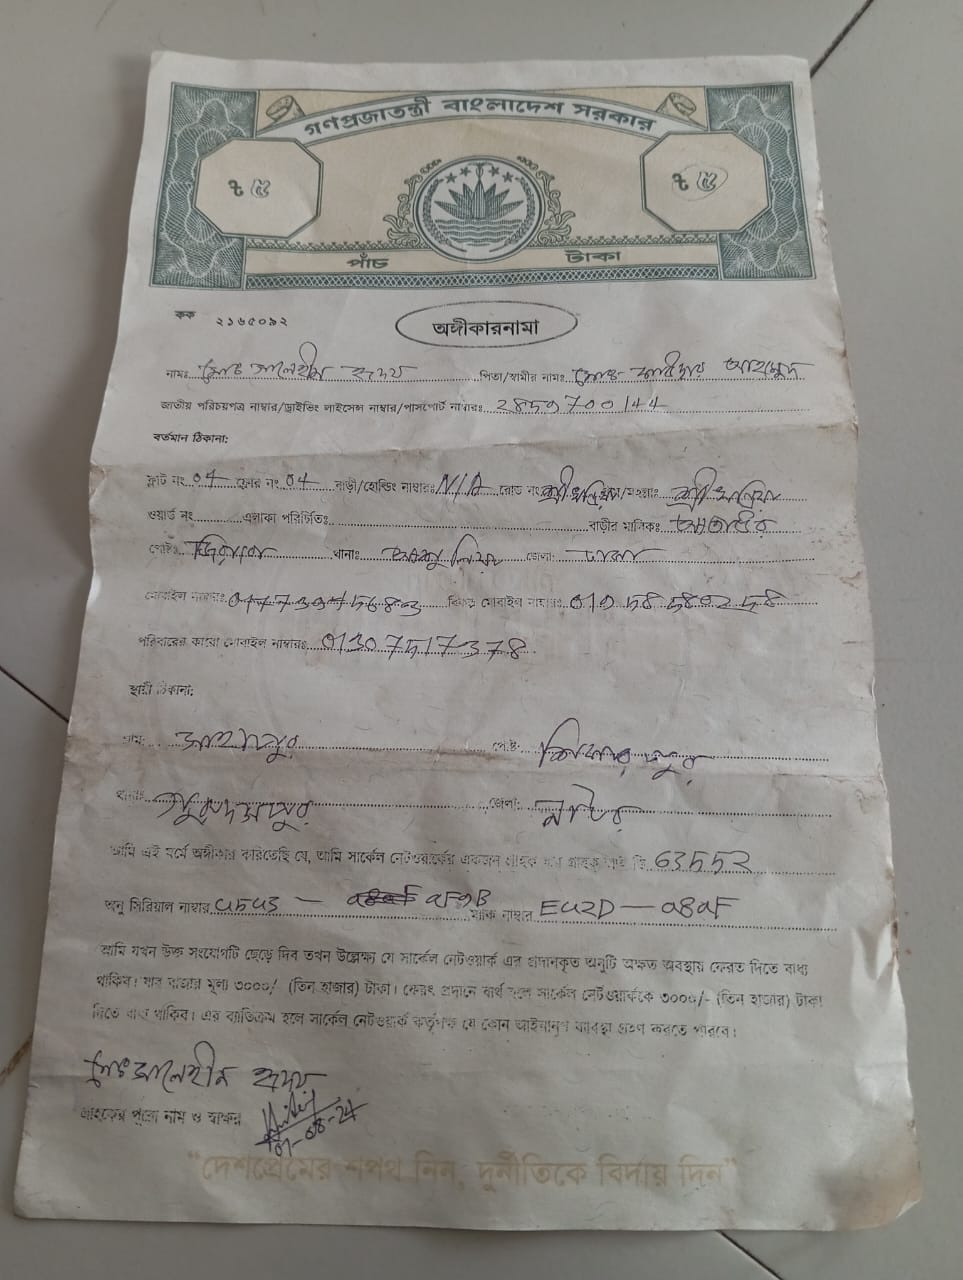 গণপ্রজাতন্ত্রী বাংলাদেশ সরকার
৳ ৫ ৳ ৫
পাঁচ টাকা
কক ২১৬৫০৯২
অঙ্গীকারনামা
নামঃ মোঃ সালেহীন হৃদয় পিতা/স্বামীর নামঃ মোঃ আহম্মেদ
জাতীয় পরিচয়পত্র নাম্বার/ড্রাইভিং লাইসেন্স নাম্বার/পাসপোর্ট নাম্বারঃ 2859700144
বর্তমান ঠিকানা:
ফ্লাট নং 04 ফ্লোর নং 04 বাড়ী/হোল্ডিং নাম্বারঃ N/A রোড নং
ওয়ার্ড নং এলাকা পরিচিতিঃ বাড়ীর মালিকঃ
পোষ্টঃ জিরাবো থানাঃ আশুলিয়া জেলা: ঢাকা
মোবাইল নাম্বারঃ বিকল্প মোবাইল নাম্বারঃ
পরিবারের কারো মোবাইল নাম্বারঃ 01307517378
স্থায়ী ঠিকানা:
গ্রাম: পোষ্ট:
থানাঃ গুরুদাসপুর জেলা: নাটোর
আমি এই মর্মে অঙ্গীকার করিতেছি যে, আমি সার্কেল নেটওয়ার্কের একজন গ্রাহক যার গ্রাহক আই ডি 63552
অনু সিরিয়াল নাম্বার ম্যাক নাম্বার
আমি যখন উক্ত সংযোগটি ছেড়ে দিব তখন উল্লেক্ষ্য যে সার্কেল নেটওয়ার্ক এর প্রদানকৃত অনুটি অক্ষত অবস্থায় ফেরত দিতে বাধ্য
থাকিব। যার বাজার মূল্য ৩০০০/- (তিন হাজার) টাকা। ফেরৎ প্রদানে ব্যর্থ হলে সার্কেল নেটওয়ার্ককে ৩০০০/- (তিন হাজার) টাকা
দিতে বাধ্য থাকিব। এর ব্যতিক্রম হলে সার্কেল নেটওয়ার্ক কর্তৃপক্ষ যে কোন আইনানুগ ব্যবস্থা গ্রহণ করতে পারবে।
মোঃ সালেহীন হৃদয়
গ্রাহকের পুরো নাম ও স্বাক্ষর
01-08-24
“দেশপ্রেমের শপথ নিন, দুর্নীতিকে বিদায় দিন”